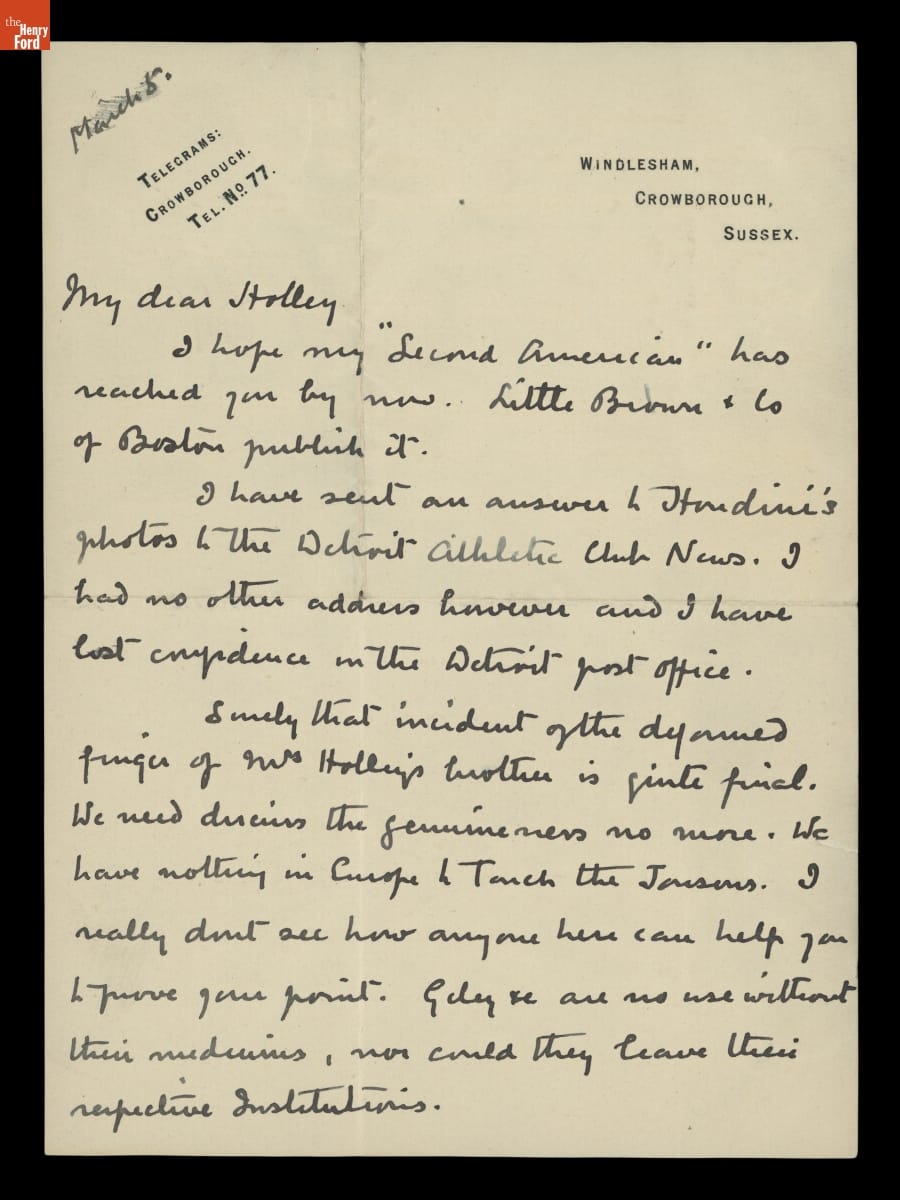 the
Henry
Ford
March 5.
TELEGRAMS:
CROWBOROUGH.
TEL. No. 77.
WINDLESHAM,
CROWBOROUGH,
SUSSEX.
My dear Holley
I hope my "Second American" has
reached you by now. Little Brown & Co
of Boston publish it.
I have sent an answer to Houdini's
photos to the Detroit Athletic Club News. I
had no other address however and I have
lost confidence in the Detroit post office.
Surely that incident of the deformed
finger of Mrs Holley's brother is quite final.
We need discuss the genuineness no more. We
have nothing in Europe to touch the Jonsons. I
really dont see how anyone here can help you
to prove your point. Geley are no use without
their mediums, nor could they leave their
respective Institutions.